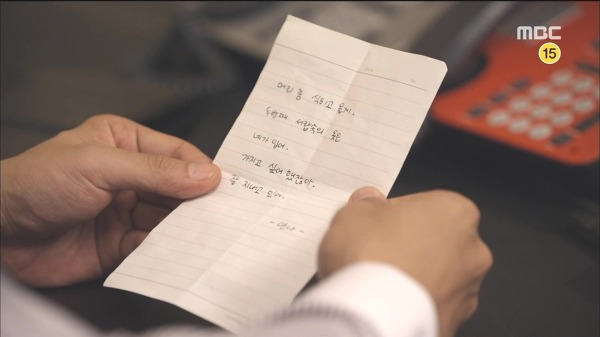 MBC
15
머리 좀 식히고 올게.
두번째 서랍속의 옷은
네가 입어.
가지고 싶어 했잖아.
잘 지내고 있어.